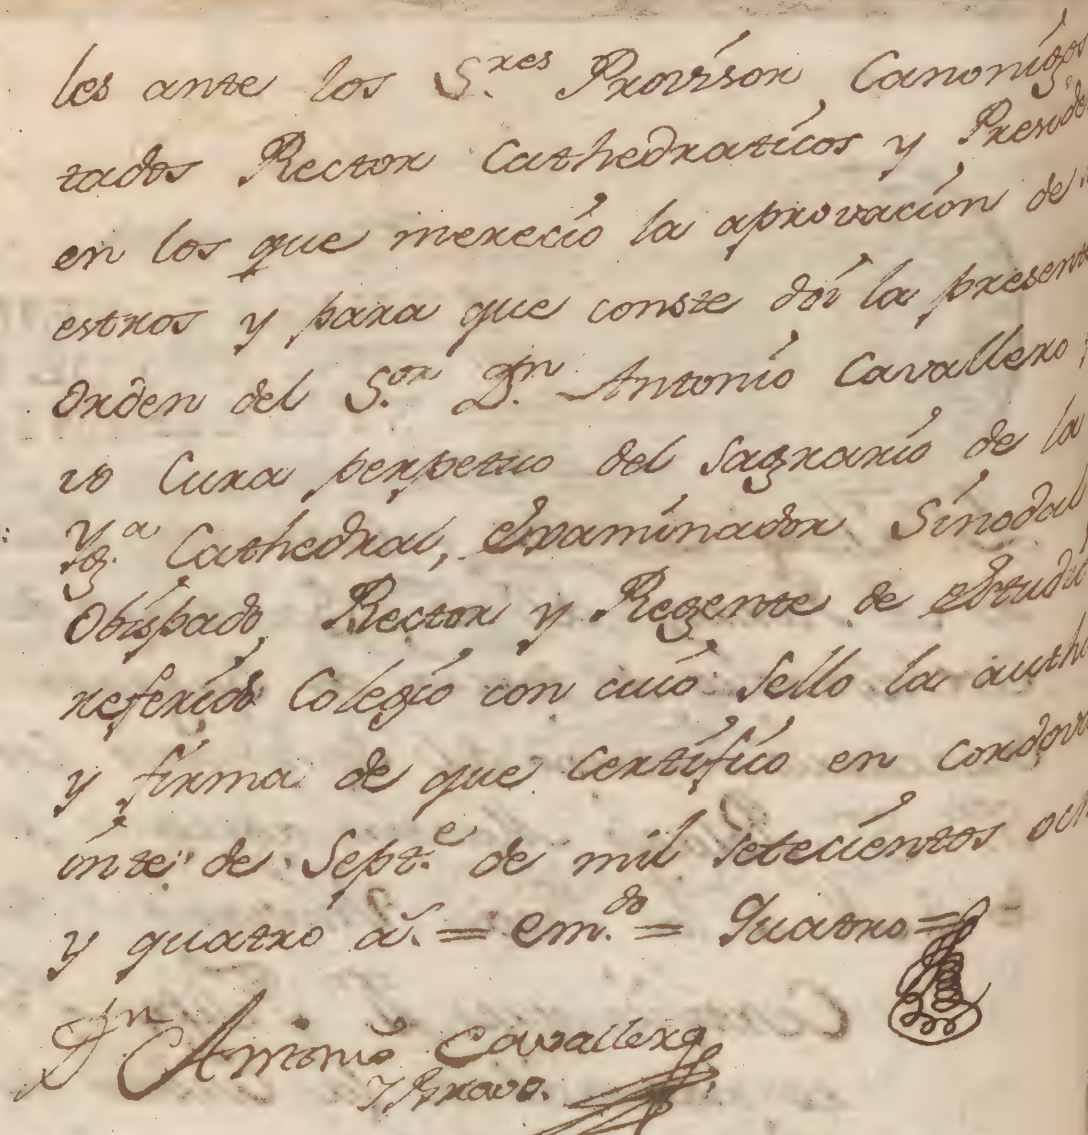 les ante los S.res Provisor Canonigos
tados Rector Cathedraticos y Preside
en los que merecio la aprovacion de
estros y para que conste doi la presente
orden del S.or D.n Antonio Cavallero
vo Cura perpetuo del Sagrario de la
Yg.a Cathedral, Examinador Sinodal
Obispado, Rector y Regente de estudi
referido Colegio con cuio sello la auth
y firma de que certifico en Cordova
inte de Sept.e de mil setecientos och
y quatro a.s = em.do = Quatro =
D.n Antonio Cavallero
y Bravo.